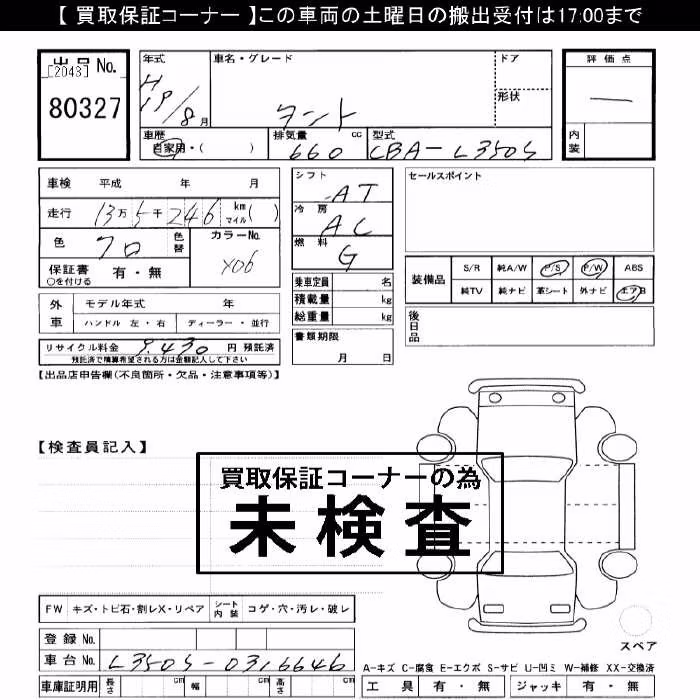 【 買取保証コーナー 】この車両の土曜日の搬出受付は17:00まで
出品 No.
[2043]
80327
年式
H
19/8月
車名・グレード
タント
ドア
形状
評価点
―
内装
車歴
自家用・( )
排気量 cc
660
型式
CBA-L350S
車検 平成 年 月
走行 13万5千246 km マイル( )
色 クロ 色替
カラーNo.
X06
保証書 有・無
○を付ける
外車 モデル年式 年
ハンドル 左・右 ディーラー・並行
リサイクル料金 9,430 円 預託済
預託済で積算希望される方は金額記入して下さい
シフト AT
冷房 AC
燃料 G
乗車定員 名
積載量 kg
総重量 kg
書類期限
月 日
セールスポイント
装備品 S/R 純A/W P/S P/W ABS
純TV 純ナビ 革シート 外ナビ エアB
後日品
【出品店申告欄(不良箇所・欠品・注意事項等)】
【検査員記入】
買取保証コーナーの為
未検査
FW キズ・トビ石・割レX・リペア シート内装 コゲ・穴・汚レ・破レ
登録 No.
車台 No. L350S-0316646
車庫証明用 長さ cm 幅 cm 高さ cm
スペア
A-キズ C-腐食 E-エクボ S-サビ U-凹ミ W-補修 XX-交換済
工具 有・無 ジャッキ 有・無